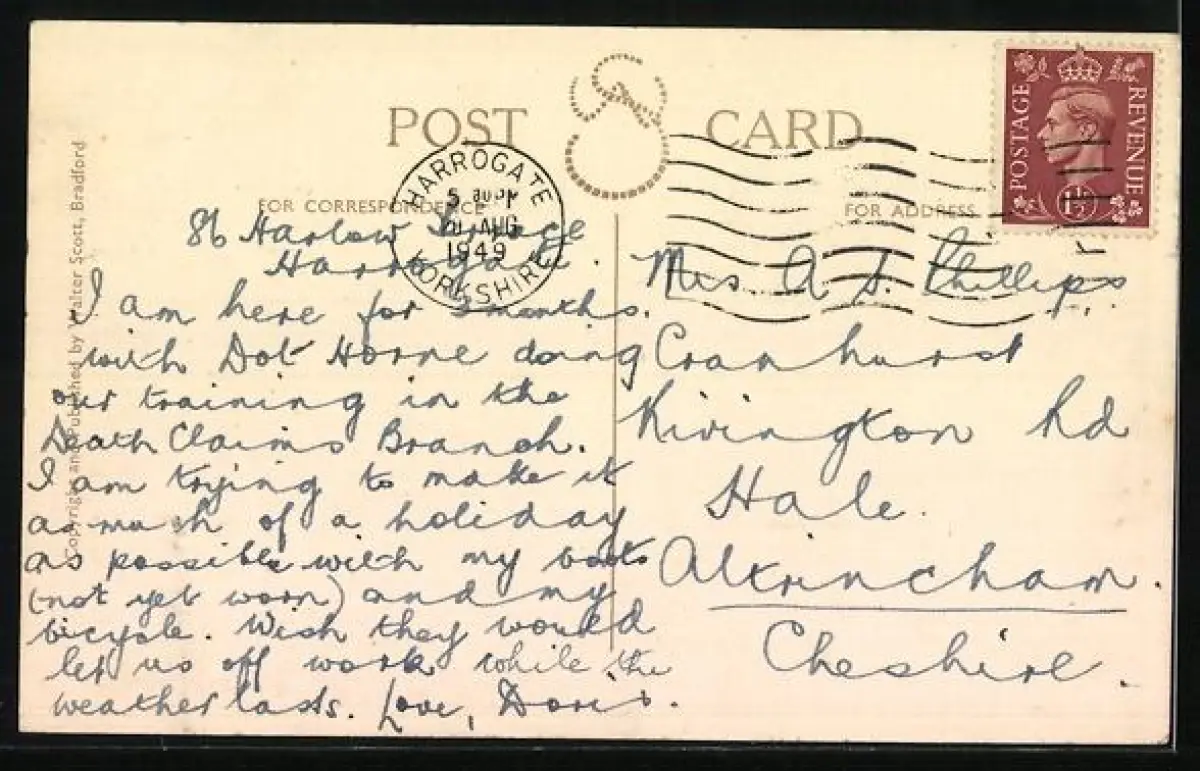 POST CARD
FOR CORRESPONDENCE
FOR ADDRESS
Copyright and Published by Walter Scott, Bradford
HARROGATE
YORKSHIRE
AUG
1949
POSTAGE
REVENUE
1½
86 Harlow
Harrogate.
I am here for 3 months.
with Dot Horne doing
our training in the
Death Claims Branch.
I am trying to make it
as much of a holiday
as possible with my boots
(not yet worn) and my
bicycle. Wish they would
let us off work while the
weather lasts. Love, Doris.
Mrs A S. Phillips.
Cranhurst
Rivington Rd
Hale.
Altrincham.
Cheshire.